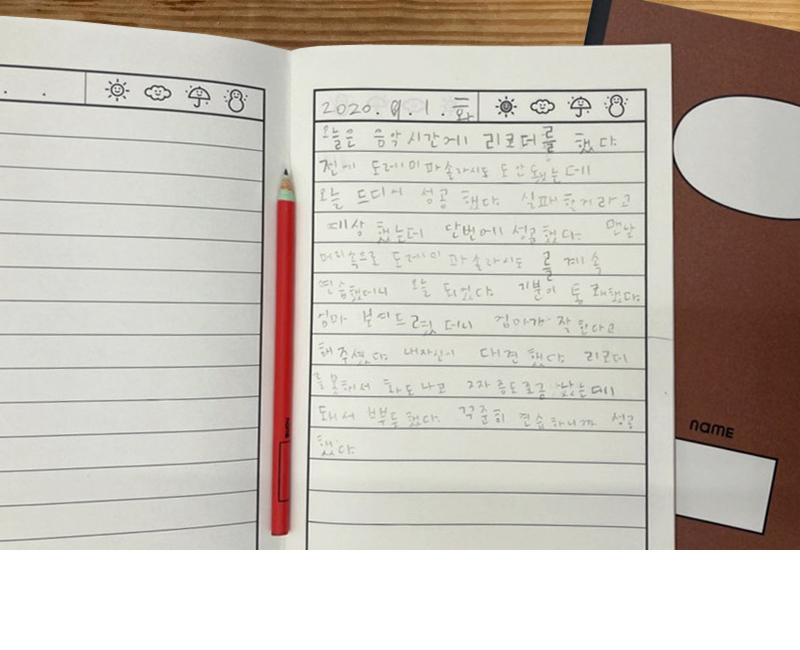 2020. 9. 1. 화
오늘은 음악시간에 리코더를 했다.
전에 도레미파솔라시도 도 안됐는데
오늘 드디어 성공 했다. 실패할거라고
예상 했는데 단번에 성공했다. 맨날
머리속으로 도레미 파솔라시도 를 계속
연습했더니 오늘 되었다. 기분이 통쾌했다.
엄마 보여드렸더니 엄마가 잘한다고
해주셨다. 내자신이 대견했다. 리코더
를 못해서 화도나고 조금 났는데
돼서 뿌듯했다. 꾸준히 연습하니까 성공
했다.
NAME